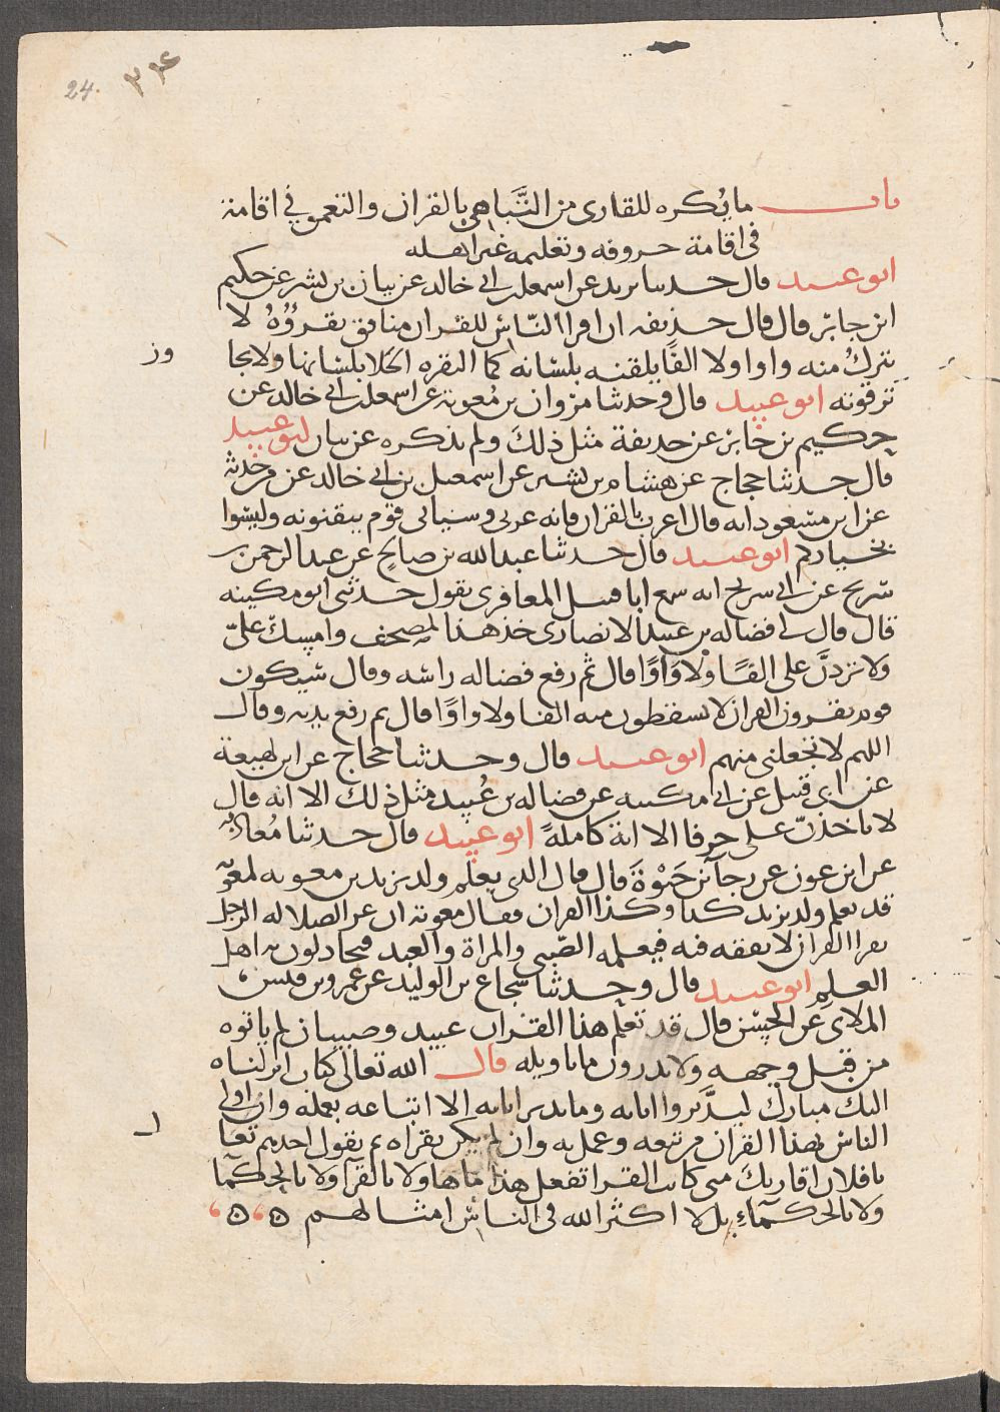 24. ٣٤
باب ما يُكره للقارى من التَّباهى بالقران والتعمق في اقامة
فى اقامة حروفه وتعليمه غير اهله
ابو عبيد قال حدثنا يزيد عن اسمعيل بن ابي خالد عن بيان بن بشر عن حكيم
ابن جابر قال قال حذيفه ان اقرأ النّاس للقران منافق يقرؤُهُ لا
يتركُ منه واوا ولا الفًا يلفته بلسانه كما البقره الخلا بلسانها ولا يجا
وز
ترقوته ابو عبيد قال وحدثنا مروان بن مُعوية عن اسمعيل بن ابي خالد عن
حكيم بن جابر عن حذيفة مثل ذلكَ ولم يذكره عن بيان ابو عبيد
قال حدثنا حجاج عن هشام بن بشير عن اسمعيل بن ابي خالد عن من حدثه
عن ابن مسعود انه قال اعرب بالقران فانه عربى وسياتى قوم يثقفونه وليسوا
بخياركم ابو عبيد قال حدثنا عبد الله بن صالح عن عبد الرحمن بن
شريح عن ابى سريح انه سمع ابا قبيل المعافرى يقول حدثنى ابو مكينه
قال قال لى فضاله بن عبيد الانصارى خذ هذا المصحف وامسك علىّ
ولا تردنَّ على الفًا ولا وَاوًا قال ثم رفع فضاله راسه وقال سيكون
قوم يقرون القران لا يسقطون منه الفا ولا واوًا قال ثم رفع يديه وقال
اللهم لا تجعلنى منهم ابو عبيد قال وحدثنا حجاج عن ابن لهيعة
عن ابى قبيل عن ابى مكينه عن فضاله بن عُبيد مثل ذلك الا انه قال
لا تاخذنّ على حرفا الا اية كاملةً ابو عبيد قال حدثنا مُعاذ
عن ابن عون عن رجآ بن حَيْوَةَ قال قال الذى يعلم ولد يزيد بن معويه لمعويه
قد تعلم ولد يزيد كذا وكذا القران فقال معوية ان عز الضلاله الرجل
يقرا القران لا يفقه فيه فيعلمه الصّبى والمراة والعبد فيجادلون به اهل
العلم ابو عبيد قال وحدثنا شجاع بن الوليد عن عمرو بن قيس
الملاى عَن الحسن قال قد تعلم هذا القران عبيد وصبيان لم ياتوه
من قبل وجهه ولا يدرون ما تاويله قال الله تعالى كتاب انزلناه
اليك مبارك ليدَّبروا اياته وما تدبر اياته الا اتباعه بعمله وان اولى
الناس بهذا القران من تبعه وعمل به وان لم يكن يقراه ثم يقول احدهم تعا
ل
يا فلان اقاريكَ متى كانت القرا تفعل هذا ما هاولا بالقرآ ولا بالحكمآ
ولا بالحكمآءِ بل لا اكثر الله فى النّاس امثالهم ه ه